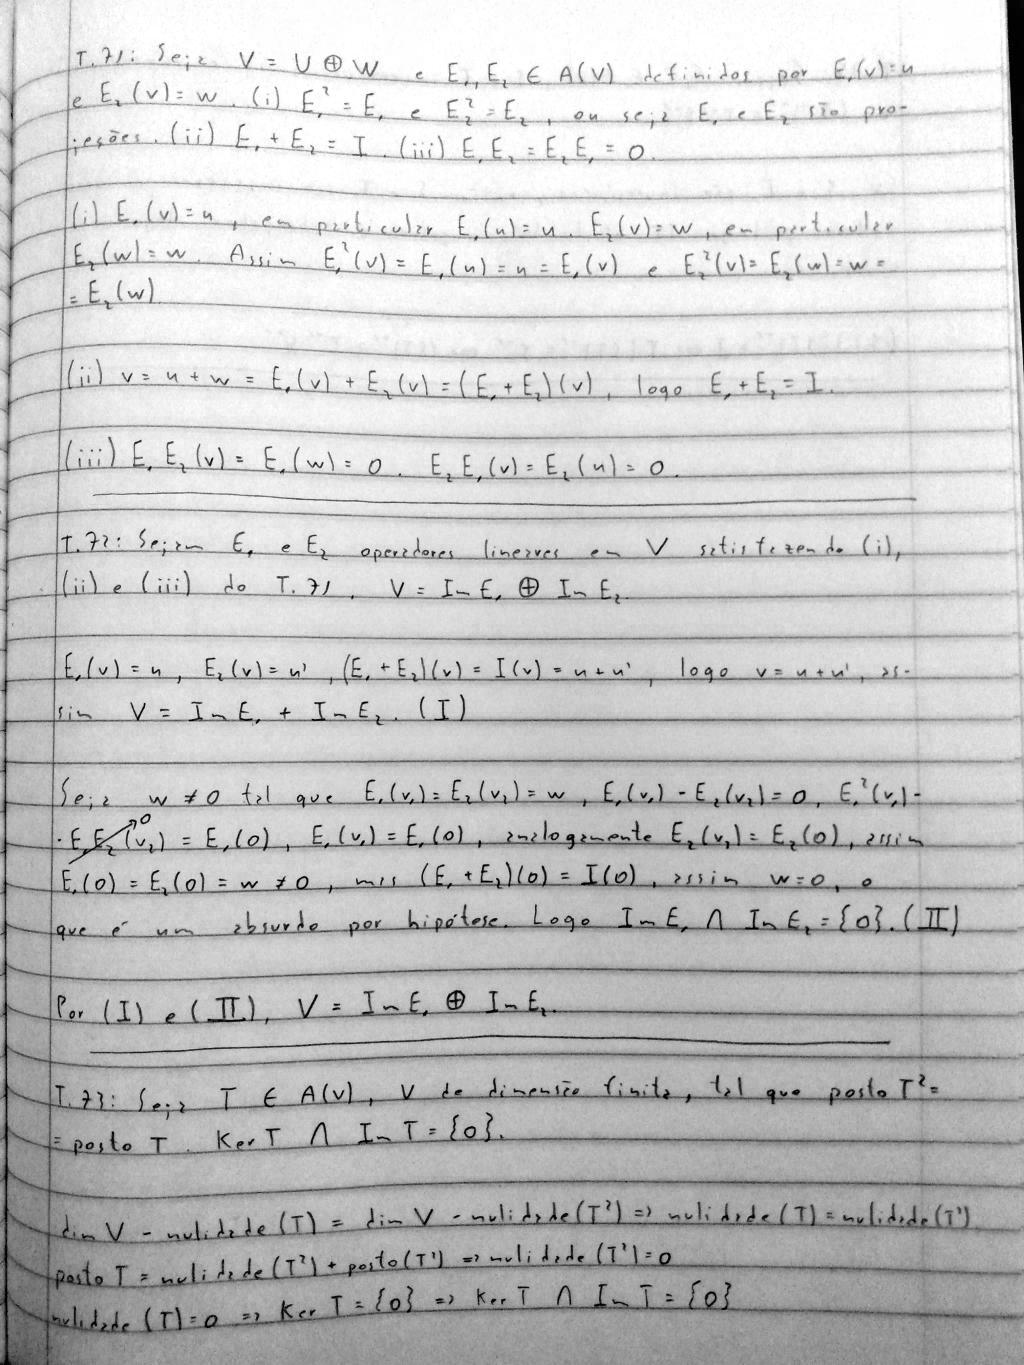 T.71: Seja V = U ⊕ W e E₁, E₂ ∈ A(V) definidos por E₁(v)=u
e E₂(v)=w. (i) E₁²=E₁ e E₂²=E₂, ou seja E₁ e E₂ são pro-
jeções. (ii) E₁+E₂=I. (iii) E₁E₂=E₂E₁=0.
(i) E₁(v)=u, em particular E₁(u)=u. E₂(v)=w, em particular
E₂(w)=w. Assim E₁²(v)=E₁(u)=u=E₁(v) e E₂²(v)=E₂(w)=w=
=E₂(w)
(ii) v=u+w=E₁(v)+E₂(v)=(E₁+E₂)(v), logo E₁+E₂=I.
(iii) E₁E₂(v)=E₁(w)=0. E₂E₁(v)=E₂(u)=0.
T.72: Sejam E₁ e E₂ operadores lineares em V satisfazendo (i),
(ii) e (iii) do T.71. V = Im E₁ ⊕ Im E₂.
E₁(v)=u, E₂(v)=u', (E₁+E₂)(v)=I(v)=u+u', logo v=u+u', as-
sim V = Im E₁ + Im E₂. (I)
Seja w≠0 tal que E₁(v₁)=E₂(v₂)=w, E₁(v₁)-E₂(v₂)=0, E₁²(v₁)-
-E₁E₂(v₂)⁰=E₁(0), E₁(v₁)=E₁(0), analogamente E₂(v₂)=E₂(0), assim
E₁(0)=E₂(0)=w≠0, mas (E₁+E₂)(0)=I(0), assim w=0, o
que é um absurdo por hipótese. Logo Im E₁ ∩ Im E₂={0}. (II)
Por (I) e (II), V = Im E₁ ⊕ Im E₂.
T.73: Seja T ∈ A(V), V de dimensão finita, tal que posto T²=
=posto T. Ker T ∩ Im T={0}.
dim V - nulidade(T) = dim V - nulidade(T²) => nulidade(T)=nulidade(T²)
posto T = nulidade(T²)+posto(T²) => nulidade(T²)=0
nulidade(T)=0 => Ker T={0} => Ker T ∩ Im T={0}